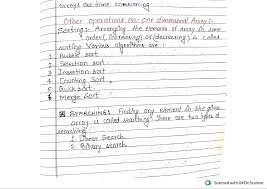 arrays as time consuming.
Other operations on one dimensional Arrays:-
Sorting:- Arranging the elements of array in some
order (increasing) or (decreasing) is called
sorting. Various algorithms are:
1 Bubble sort
2 Selection sort
3 Insertion sort
4 Counting sort
5 Quick sort
6 Merge sort
SEARCHING: Finding any element in the given
array is called searching. There are two types of
searching
1. Linear Search
2. Binary search
Scanned with OKEN Scanner